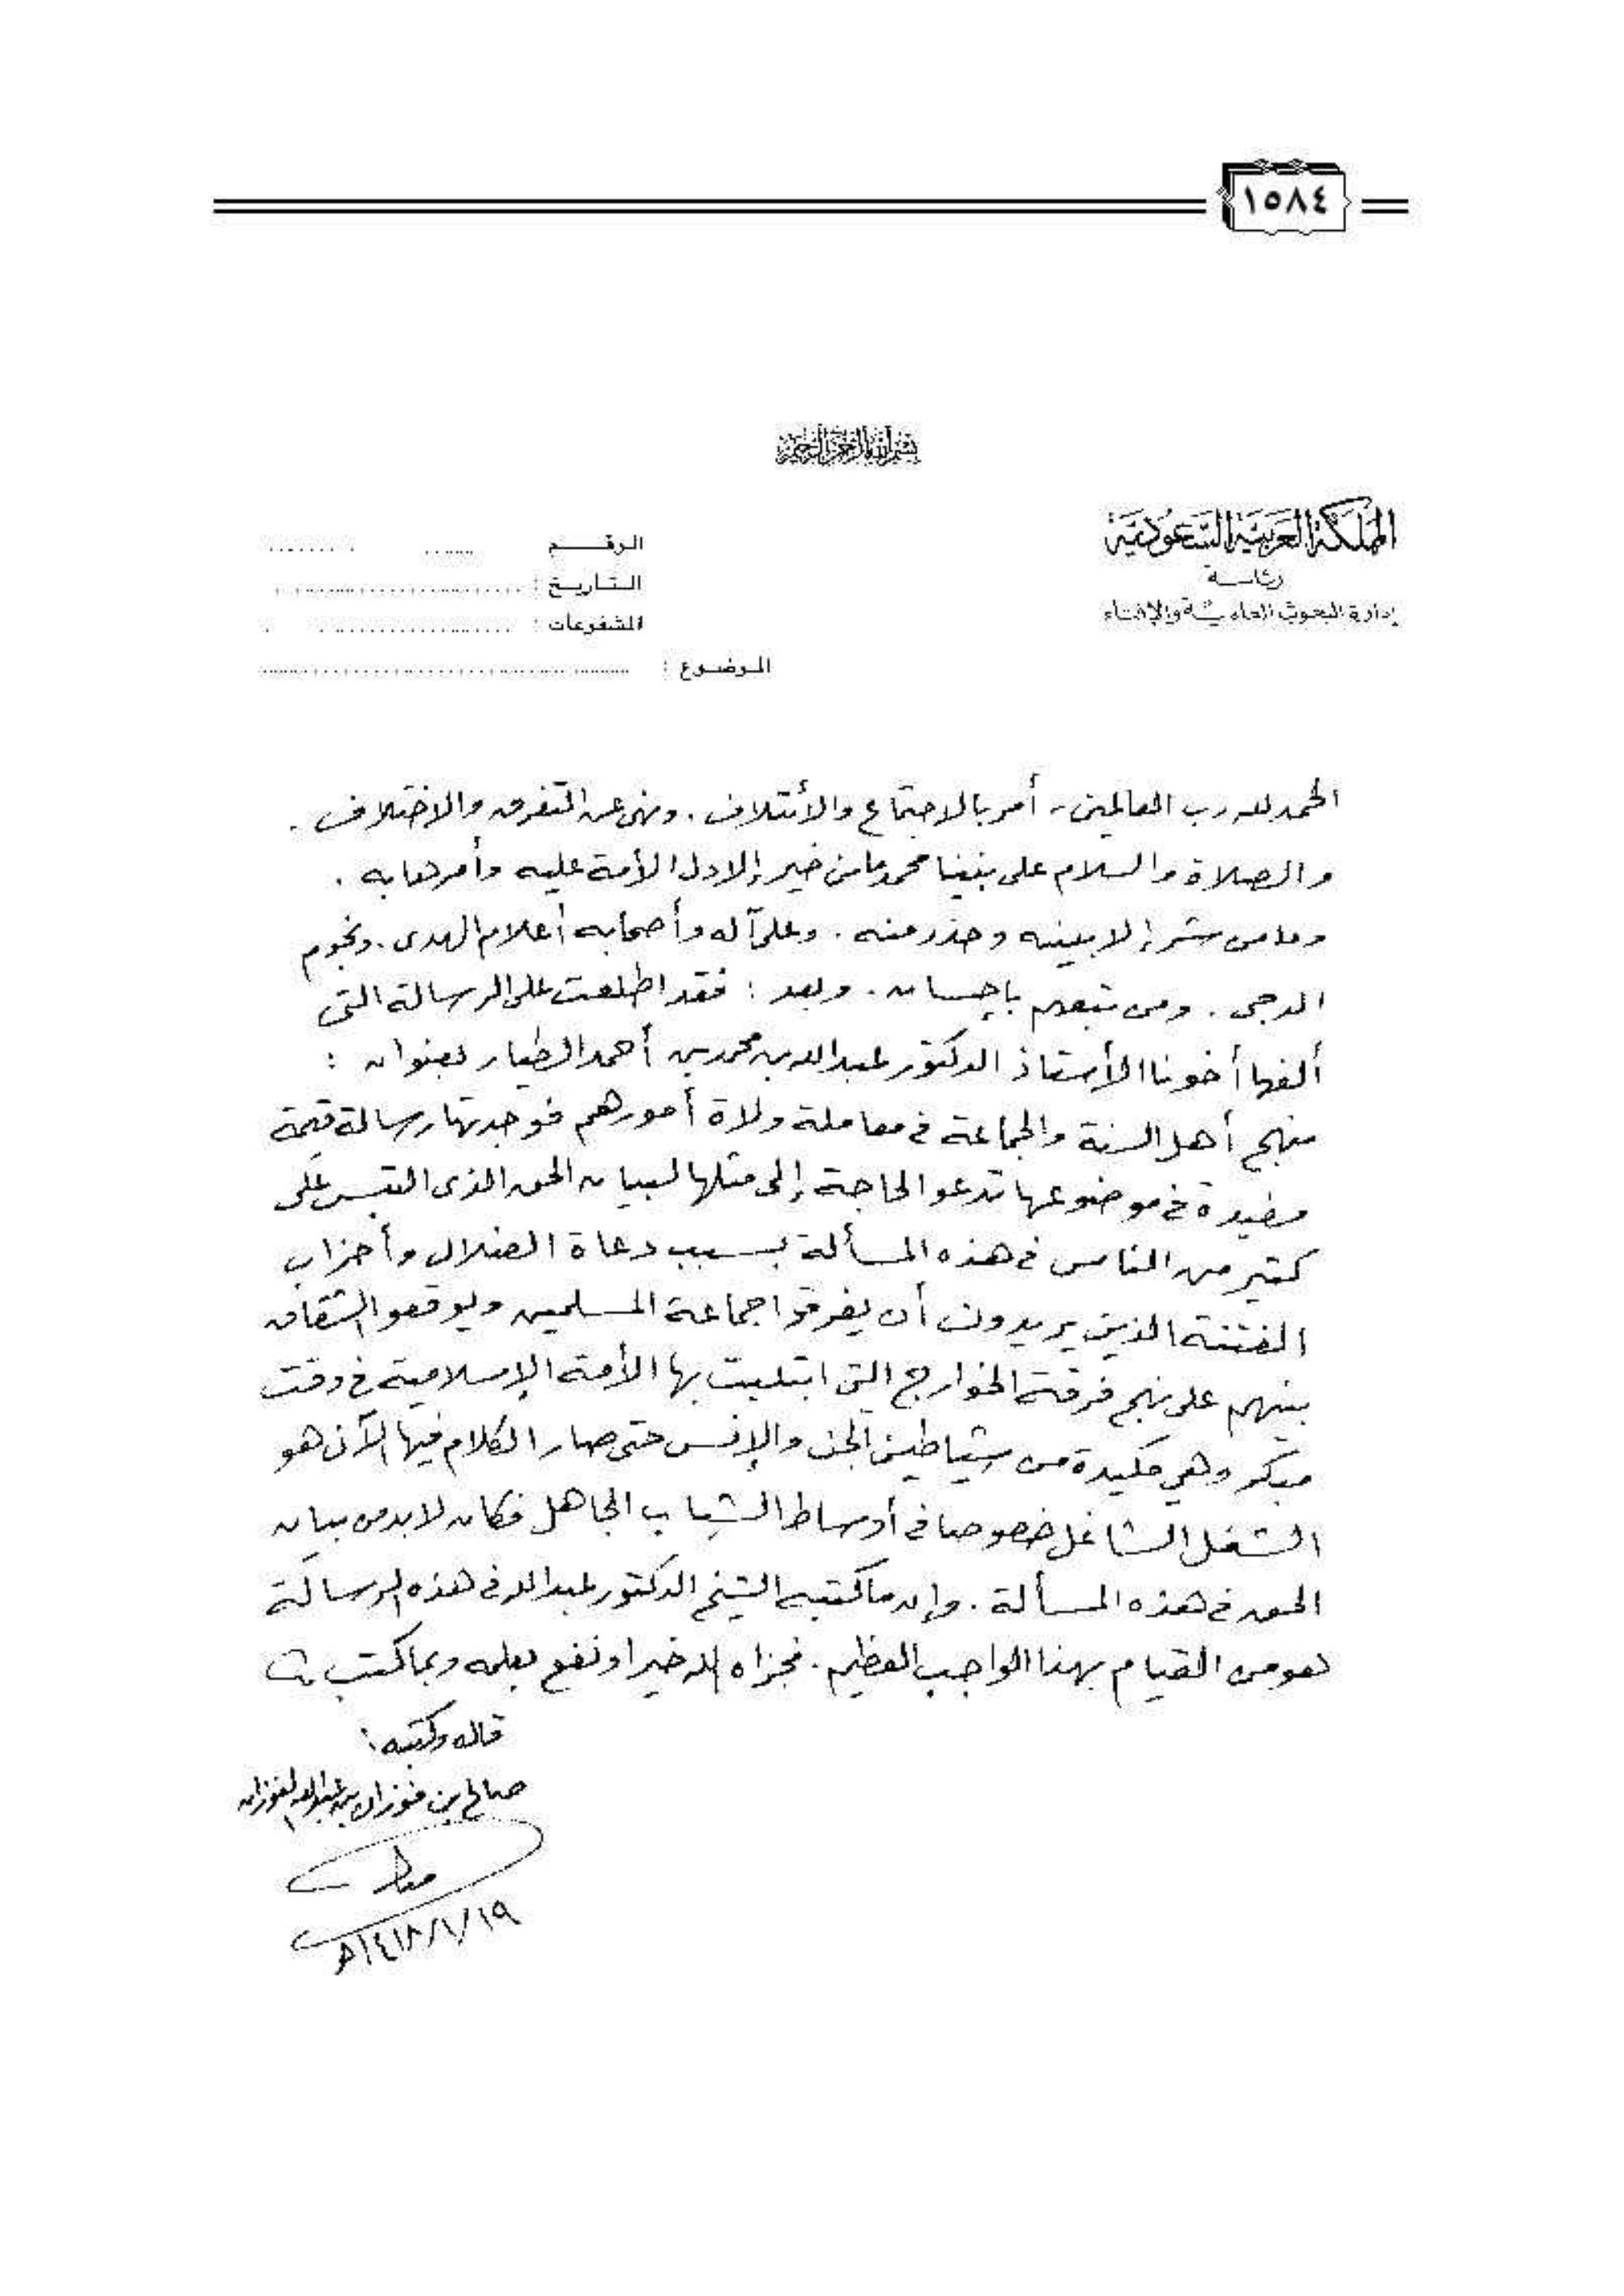 ١٥٨٤
بسم الله الرحمن الرحيم
المملكة العربية السعودية
رئاسة
إدارة البحوث العلمية والإفتاء
الرقم
التاريخ :
المشفوعات :
الموضوع :
الحمد لله رب العالمين - أمر بالاجتماع والأئتلاف . ونهى عن التفرق والاختلاف .
والصلاة والسلام على نبينا محمد ما من خير إلا دل الأمة عليه وأمرها به .
وما من شر إلا بينه وحذر منه . وعلى آله وأصحابه أعلام الهدى . ونجوم
الدجى . ومن تبعهم بإحسان . وبعد : فقد اطلعت على الرسالة التي
ألفها أخونا الأستاذ الدكتور عبدالله بن محمد بن أحمد الطيار بعنوان :
منهج أهل السنة والجماعة في معاملة ولاة أمورهم فوجدتها رسالة قيمة
مفيدة في موضوعها تدعو الحاجة إلى مثلها لبيان الحق الذي التبس على
كثير من الناس في هذه المسألة بسبب دعاة الضلال وأحزاب
الفتنة الذين يريدون أن يفرقوا جماعة المسلمين ويوقعوا الشقاق
بينهم على نهج فرقة الخوارج التي ابتليت بها الأمة الإسلامية في وقت
مبكر وهي مكيدة من شياطين الجن والإنس حتى صار الكلام فيها الآن هو
الشغل الشاغل خصوصا في أوساط الشباب الجاهل فكان لابد من بيان
الحق في هذه المسألة . وإن ما كتبه الشيخ الدكتور عبدالله في هذه الرسالة
هو من القيام بهذا الواجب العظيم . فجزاه الله خيرا ونفع بعلمه وبما كتب
قاله وكتبه :
صالح بن فوزان بن عبدالله الفوزان
١٤١٨/١/١٩هـ